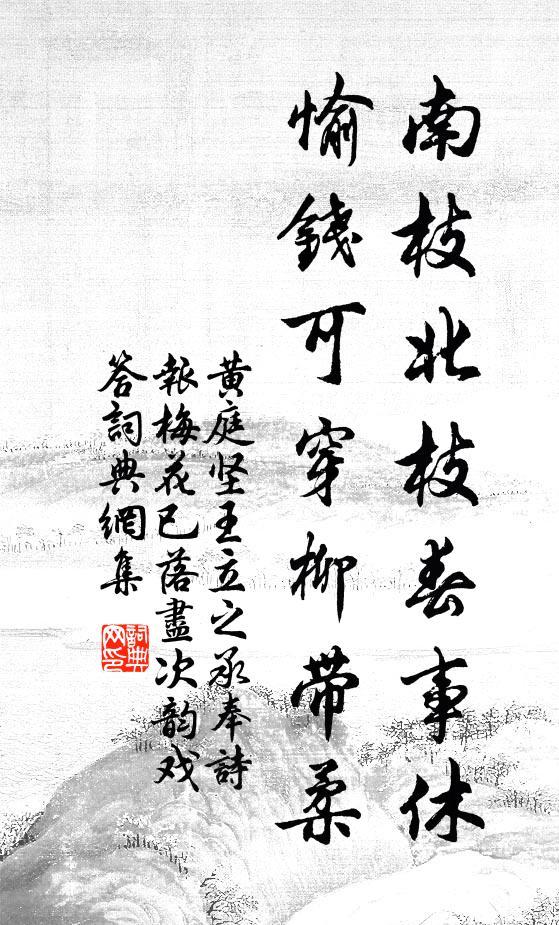 南枝北枝春事休
愉錢可穿柳帶柔
黄庭坚王立之承奉詩
報梅花已落盡次韵戏
答詞典網集
詞典
网印